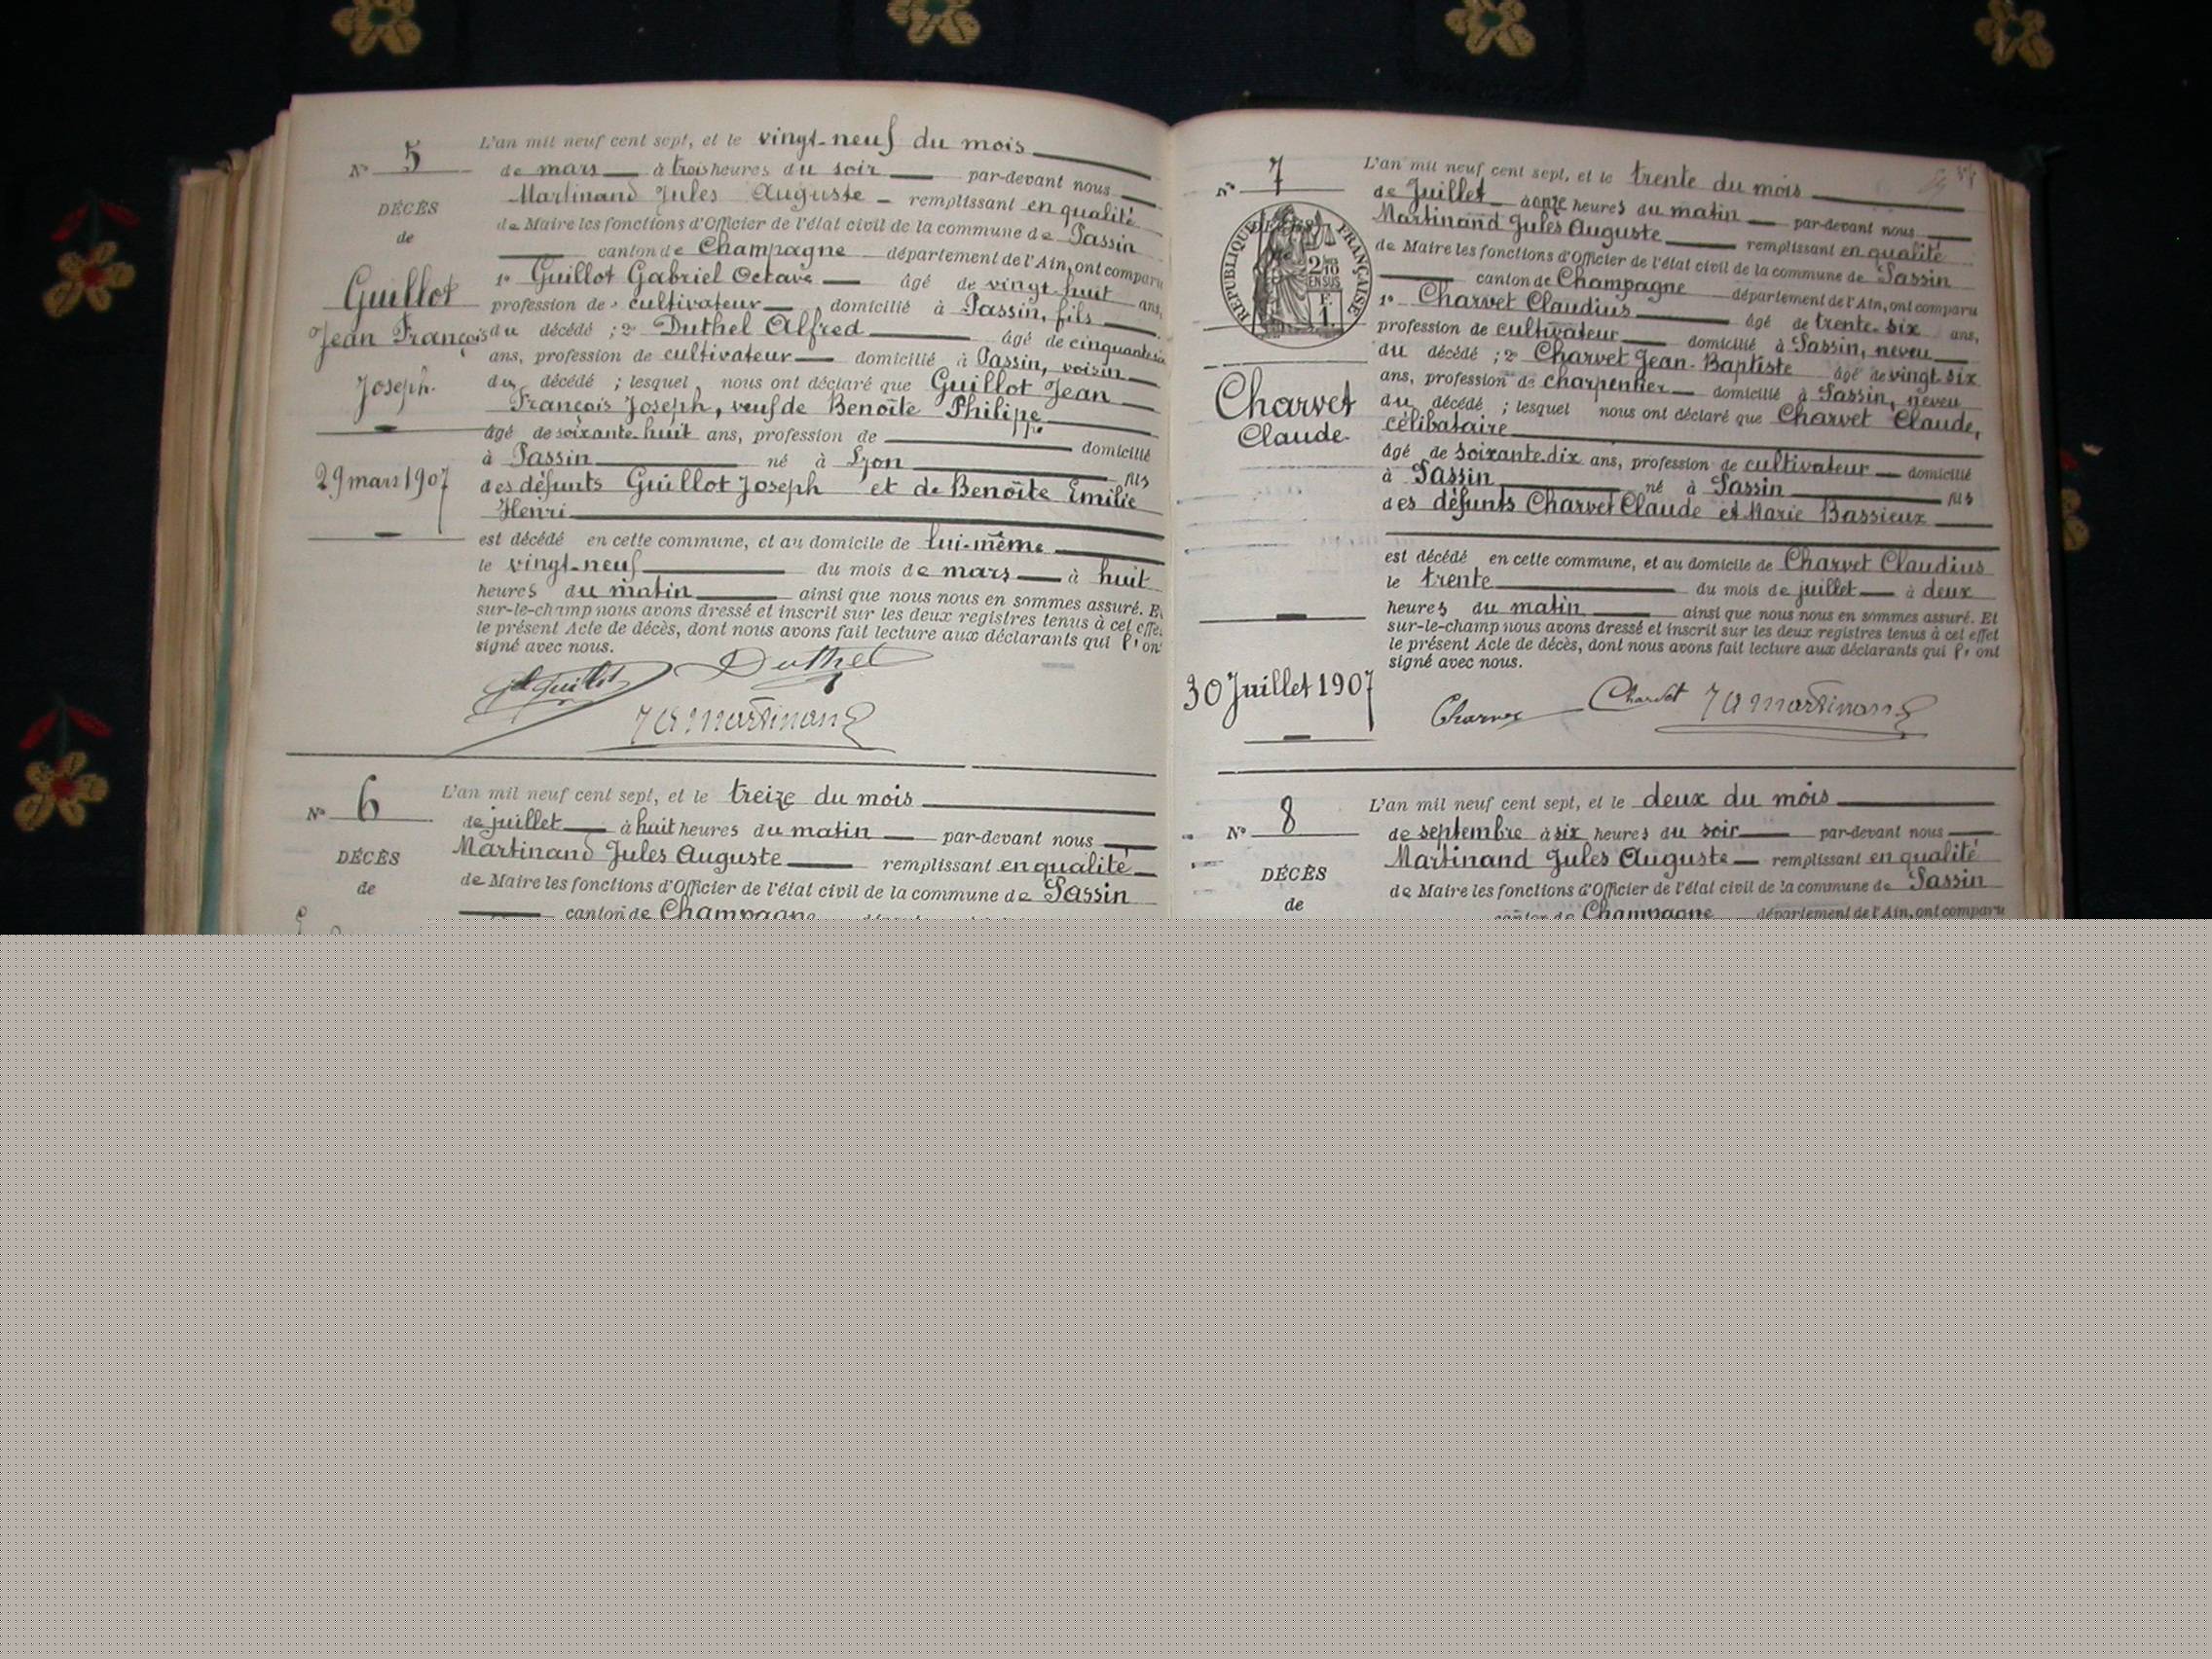 N° 5
DÉCÈS
de
Guillot
Jean François
Joseph.
29 mars 1907
L'an mil neuf cent sept, et le vingt-neuf du mois
de mars à trois heures du soir par-devant nous
Martinand Jules Auguste remplissant en qualité
de Maire les fonctions d'Officier de l'état civil de la commune de Passin
canton de Champagne département de l'Ain, ont comparu
1° Guillot Gabriel Octave âgé de vingt-huit ans,
profession de cultivateur domicilié à Passin, fils
du décédé ; 2° Duthel Alfred âgé de cinquante
ans, profession de cultivateur domicilié à Passin, voisin
du décédé ; lesquel nous ont déclaré que Guillot Jean
François Joseph, veuf de Benoîte Philippe
âgé de soixante-huit ans, profession de domicilié
à Passin né à Lyon fils
des défunts Guillot Joseph et de Benoîte Emilie
Henri
est décédé en cette commune, et au domicile de lui-même
le vingt-neuf du mois de mars à huit
heures du matin ainsi que nous nous en sommes assuré. Et
sur-le-champ nous avons dressé et inscrit sur les deux registres tenus à cet effet
le présent Acte de décès, dont nous avons fait lecture aux déclarants qui l'ont
signé avec nous.
Guillot Duthel
JA Martinand
N° 6
DÉCÈS
de
L'an mil neuf cent sept, et le treize du mois
de juillet à huit heures du matin par-devant nous
Martinand Jules Auguste remplissant en qualité
de Maire les fonctions d'Officier de l'état civil de la commune de Passin
canton de Champagne
N° 7
RÉPUBLIQUE FRANÇAISE
2/10
EN SUS
F.
1.
Charvet
Claude
30 Juillet 1907
L'an mil neuf cent sept, et le trente du mois
de Juillet à onze heures du matin par-devant nous
Martinand Jules Auguste remplissant en qualité
de Maire les fonctions d'Officier de l'état civil de la commune de Passin
canton de Champagne département de l'Ain, ont comparu
1° Charvet Claudius âgé de trente-six ans,
profession de cultivateur domicilié à Passin, neveu
du décédé ; 2° Charvet Jean-Baptiste âgé de vingt-six
ans, profession de charpentier domicilié à Passin, neveu
du décédé ; lesquel nous ont déclaré que Charvet Claude,
célibataire
âgé de soixante-dix ans, profession de cultivateur domicilié
à Passin né à Passin fils
des défunts Charvet Claude et Marie Bassieux
est décédé en cette commune, et au domicile de Charvet Claudius
le trente du mois de juillet à deux
heures du matin ainsi que nous nous en sommes assuré. Et
sur-le-champ nous avons dressé et inscrit sur les deux registres tenus à cet effet
le présent Acte de décès, dont nous avons fait lecture aux déclarants qui l'ont
signé avec nous.
Charvet Charvet JA Martinand
N° 8
DÉCÈS
de
L'an mil neuf cent sept, et le deux du mois
de septembre à six heures du soir par-devant nous
Martinand Jules Auguste remplissant en qualité
de Maire les fonctions d'Officier de l'état civil de la commune de Passin
canton de Champagne département de l'Ain, ont comparu